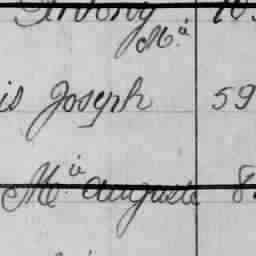 Antony 10
Mᵃ.
is Joseph 59
Mᵃ. Auguste 8